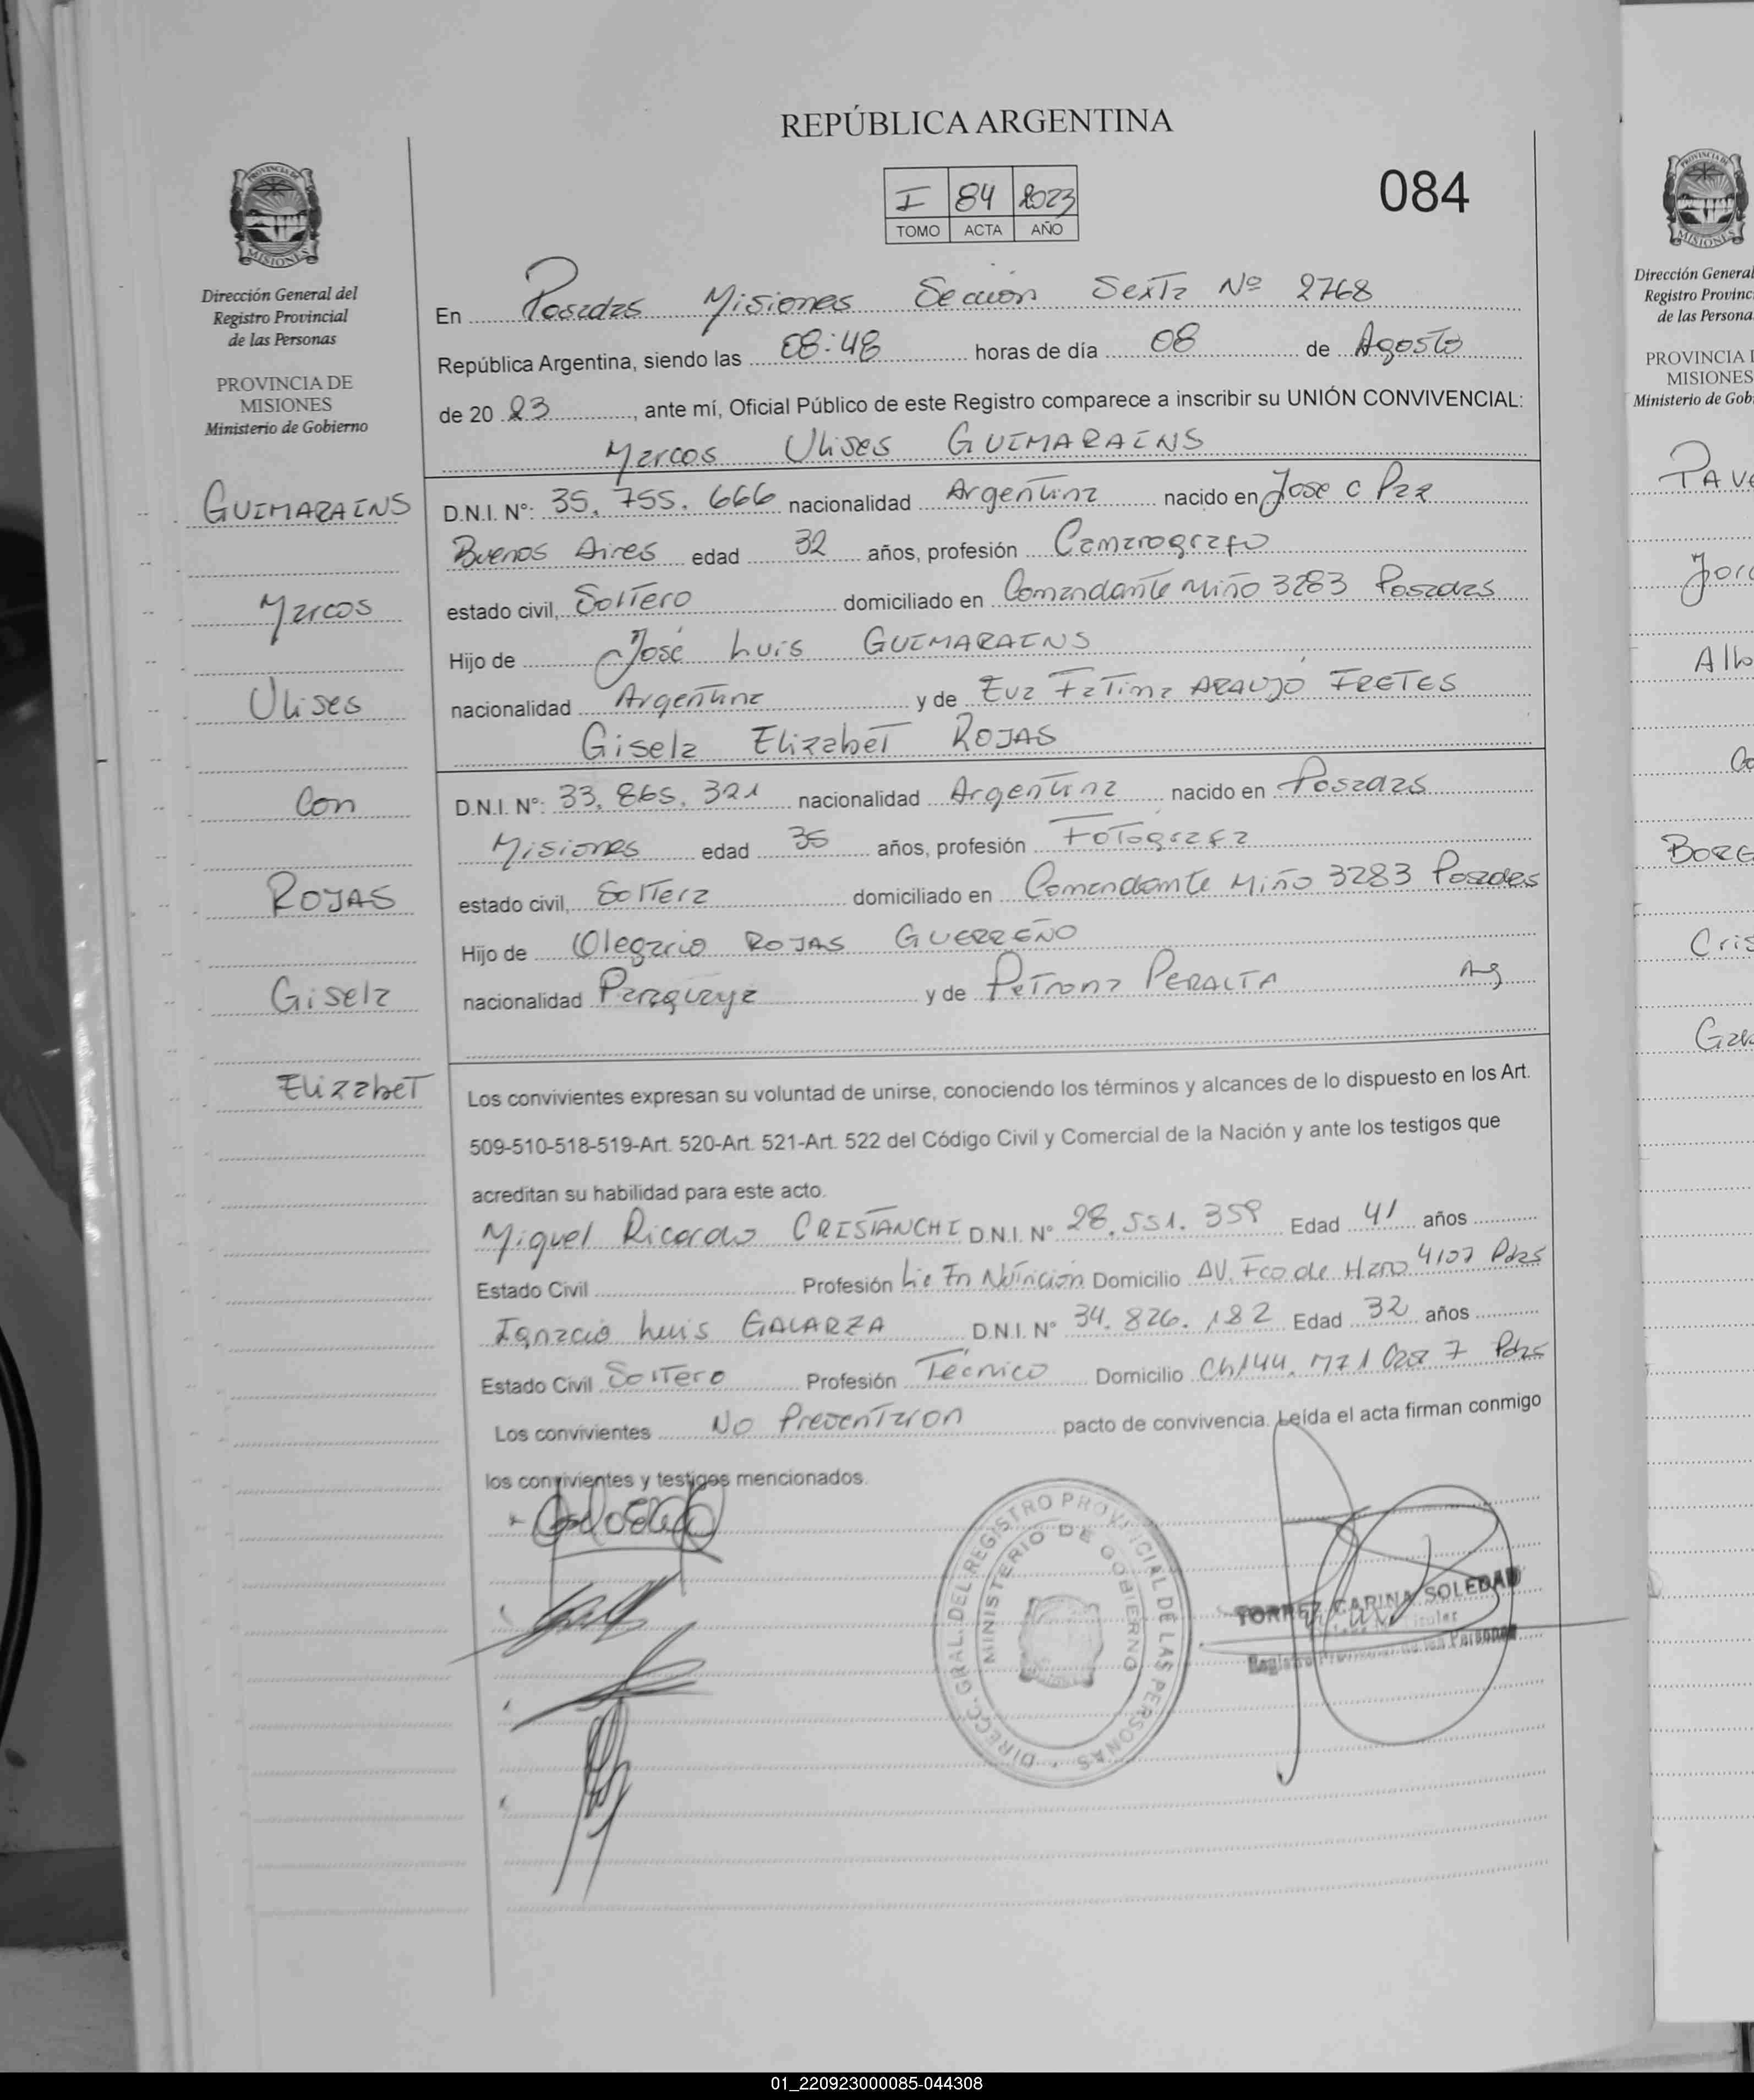 REPÚBLICA ARGENTINA
I 84 2023
TOMO ACTA AÑO
084
PROVINCIA DE
MISIONES
Dirección General del
Registro Provincial
de las Personas
PROVINCIA DE
MISIONES
Ministerio de Gobierno
GUIMARAENS
Marcos
Ulises
Con
ROJAS
Gisela
Elizabet
En Posadas Misiones Sección Sexta Nº 2768
República Argentina, siendo las 08:48 horas de día 08 de Agosto
de 20 23, ante mí, Oficial Público de este Registro comparece a inscribir su UNIÓN CONVIVENCIAL:
Marcos Ulises GUIMARAENS
D.N.I. N°: 35.755.666 nacionalidad Argentina nacido en Jose C Paz
Buenos Aires edad 32 años, profesión Camarografo
estado civil, Soltero domiciliado en Comandante Miño 3283 Posadas
Hijo de José Luis GUIMARAENS
nacionalidad Argentina y de Eva Fatima ARAUJO FRETES
Gisela Elizabet ROJAS
D.N.I. N°: 33.865.321 nacionalidad Argentina nacido en Posadas
Misiones edad 35 años, profesión Fotografa
estado civil, Soltera domiciliado en Comandante Miño 3283 Posadas
Hijo de Olegario ROJAS GUERREÑO
nacionalidad Paraguaya y de Petrona PERALTA Arg
Los convivientes expresan su voluntad de unirse, conociendo los términos y alcances de lo dispuesto en los Art.
509-510-518-519-Art. 520-Art. 521-Art. 522 del Código Civil y Comercial de la Nación y ante los testigos que
acreditan su habilidad para este acto.
Miguel Ricardo CRISTANCHI D.N.I. N° 28.551.359 Edad 41 años
Estado Civil Profesión Lic En Nutrición Domicilio AV. Fco de Haro 4107 Pdas
Ignacio Luis GALARZA D.N.I. N° 34.826.182 Edad 32 años
Estado Civil Soltero Profesión Técnico Domicilio Ch144. M71 Casa 7 Pdas
Los convivientes No Presentaron pacto de convivencia. Leída el acta firman conmigo
los convivientes y testigos mencionados.
DIRECC. GRAL. DEL REGISTRO PROVINCIAL DE LAS PERSONAS
MINISTERIO DE GOBIERNO
TORREZ CARINA SOLEDAD
Registro Provincial de las Personas
PROVINCIA DE
MISIONES
Dirección General
Registro Provinc
de las Persona
PROVINCIA
MISIONES
Ministerio de Gob
PAV
Jor
Alb
Co
BORG
Cris
Gab
01_220923000085-044308